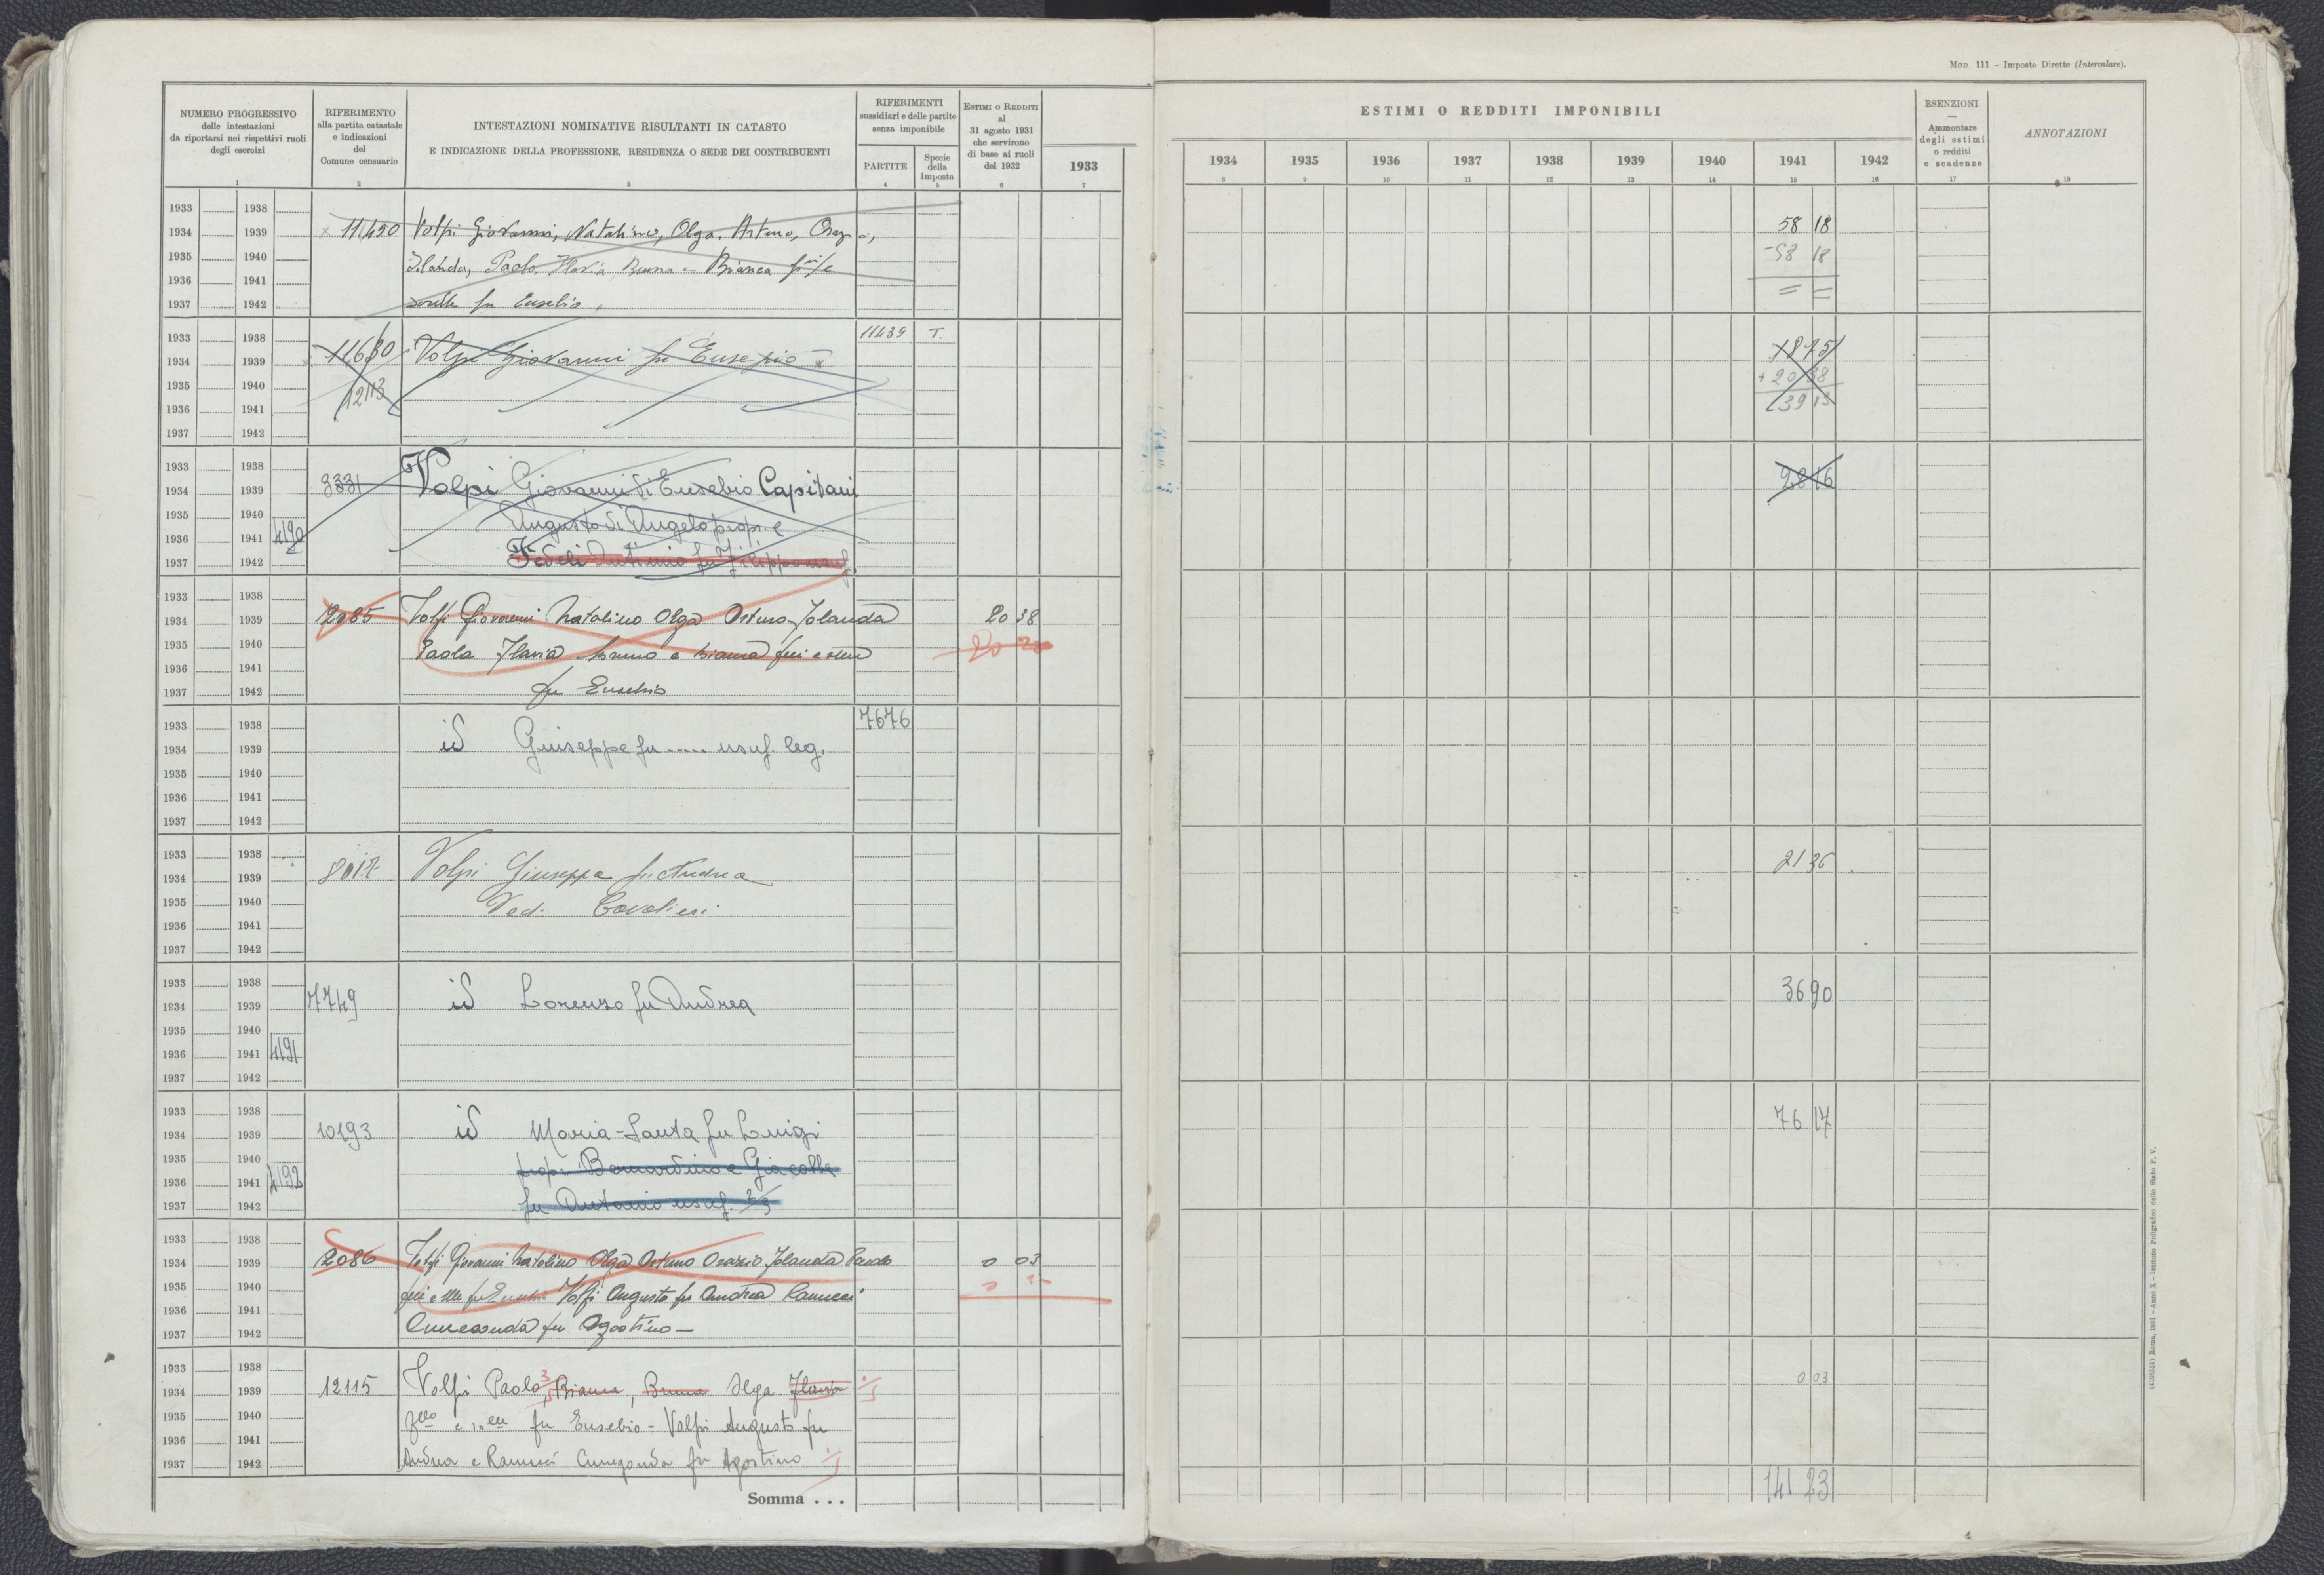 MOD. 111 – Imposte Dirette (Intercalare).
NUMERO PROGRESSIVO
delle intestazioni
da riportarsi nei rispettivi ruoli
degli esercizi
1
RIFERIMENTO
alla partita catastale
e indicazioni
del
Comune censuario
2
INTESTAZIONI NOMINATIVE RISULTANTI IN CATASTO
E INDICAZIONE DELLA PROFESSIONE, RESIDENZA O SEDE DEI CONTRIBUENTI
3
RIFERIMENTI
sussidiari e delle partite
senza imponibile
PARTITE
4
Specie
della
imposta
5
ESTIMI O REDDITI
al
31 agosto 1931
che servirono
di base ai ruoli
del 1932
6
1933
7
ESTIMI O REDDITI IMPONIBILI
1934 1935 1936 1937 1938 1939 1940 1941 1942
8 9 10 11 12 13 14 15 16
ESENZIONI
—
Ammontare
degli estimi
o redditi
e scadenze
17
ANNOTAZIONI
18
1933 1938
1934 1939 11450 Volpi Giovanni, Natalino, Olga, Arturo, Orazio, 58 18
1935 1940 Iolanda, Paolo, Flavia Bruna e Bianca f.lli e -58 18
1936 1941 = =
1937 1942 sorelle fu Eusebio,
1933 1938 11439 T.
1934 1939 11630 Volpi Giovanni fu Eusepio 18 75
1935 1940 12113 + 20 38
1936 1941 39 13
1937 1942
1933 1938
1934 1939 3331 Volpi Giovanni di Eusebio Capitani 28 16
1935 1940 Augusto di Angelo propr. e
1936 1941 4190
1937 1942 Fedeli Antimio fu Filippo usuf.
1933 1938
1934 1939 12085 Volpi Giovanni Natalino Olga Arturo Jolanda 20 38
1935 1940 Paola Flavia Bruno e Bianca f.lli e sorelle
1936 1941
1937 1942 fu Eusebio
1933 1938 7676
1934 1939 id Giuseppe fu ..... usuf. leg.
1935 1940
1936 1941
1937 1942
1933 1938
1934 1939 8017 Volpi Giuseppa fu Andrea 21 36
1935 1940 Ved. Cavalieri
1936 1941
1937 1942
1933 1938
1934 1939 7749 id Lorenzo fu Andrea 36 90
1935 1940
1936 1941 4191
1937 1942
1933 1938
1934 1939 10193 id Maria-Santa fu Luigi 76 17
1935 1940 propr. Bernardino e Giacolla
1936 1941 4192
1937 1942 fu Antonio usuf. 2/3
1933 1938
1934 1939 12086 Volpi Giovanni Natalino Olga Arturo Orazio Jolanda Paolo 0 03
1935 1940 Volpi Augusto fu Andrea Ranucci
1936 1941
1937 1942 fu Agostino –
1933 1938
1934 1939 12115 Volpi Paolo, Bianca, Bruna Olga Flavia 0 03
1935 1940 fu Eusebio – Volpi Augusto fu
1936 1941
1937 1942 Andrea e Ranucci Cunegonda fu Agostino
Somma . . . 141 23
(4103531) Roma, 1931 – Anno X – Istituto Poligrafico dello Stato P. V.